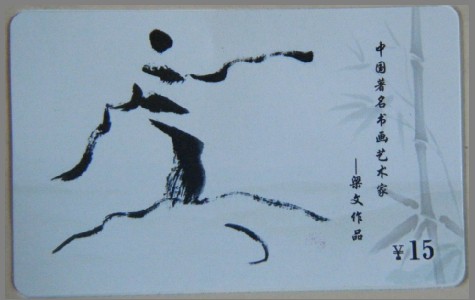 中国著名书画艺术家
—梁文作品
¥15